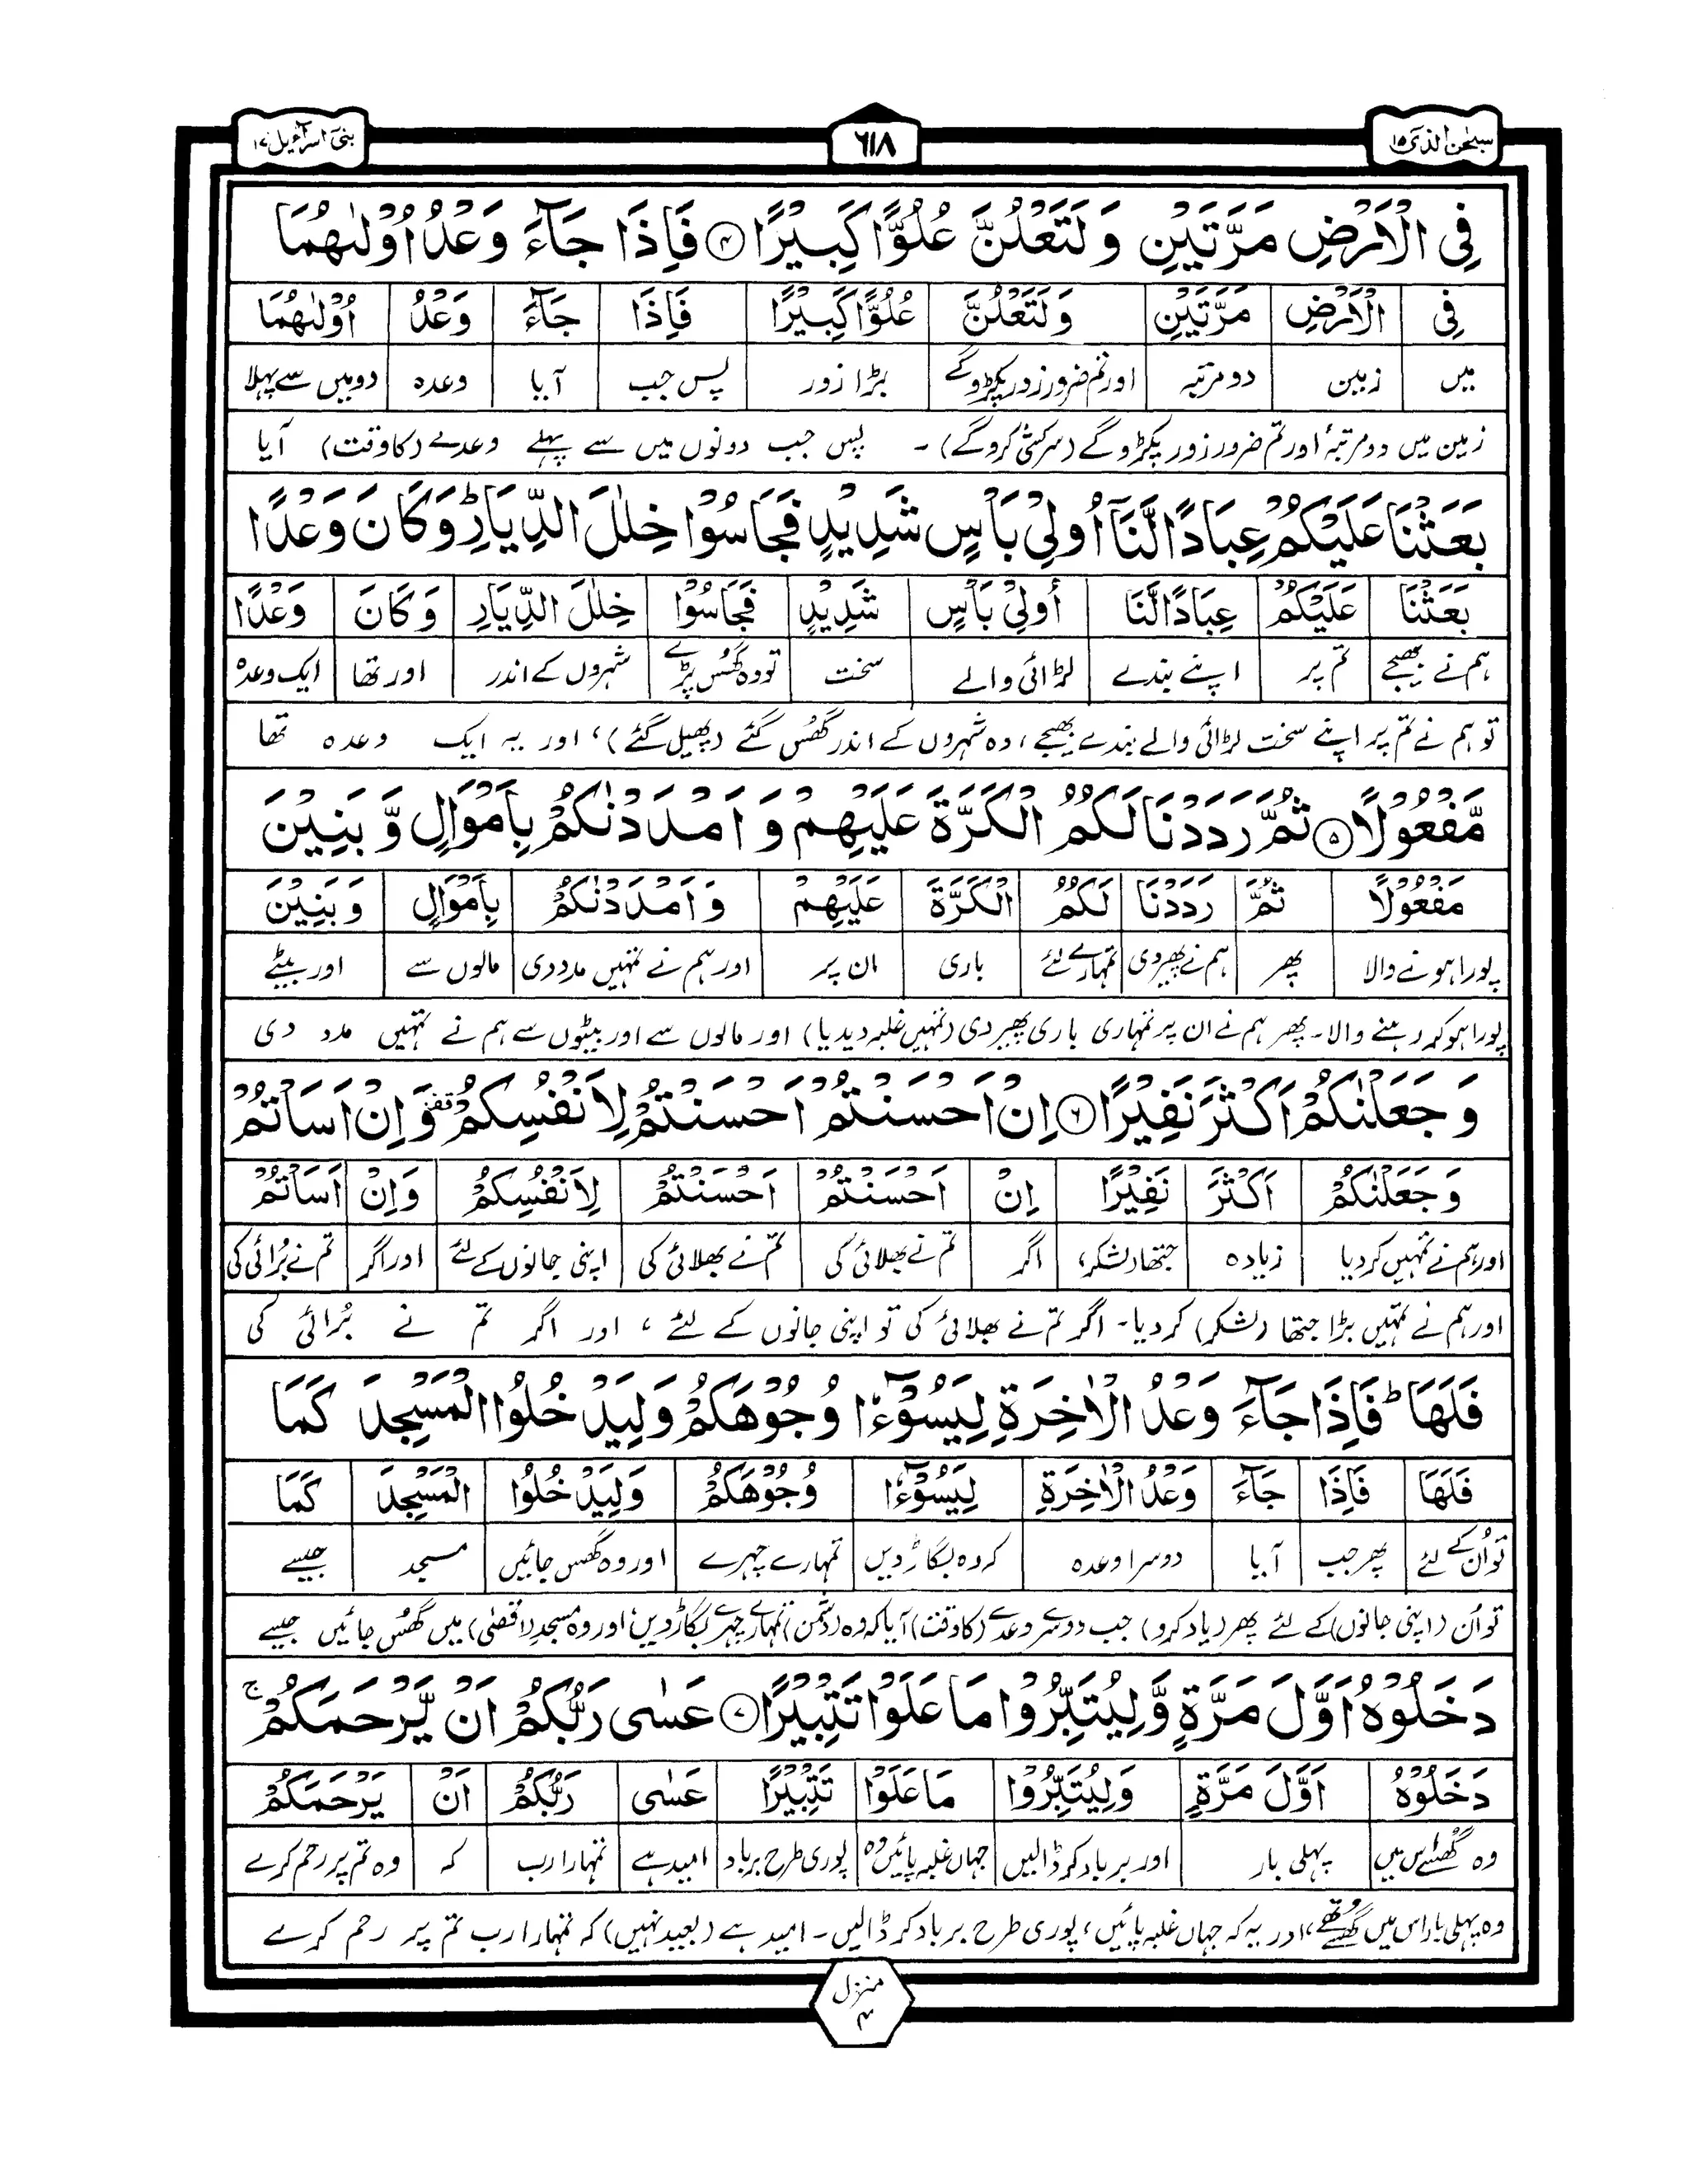 سبحٰن الذی ۱۵
۶۱۸
بنیٓ اسرآءیل ۱۷
فِی الْاَرْضِ مَرَّتَیْنِ وَ لَتَعْلُنَّ عُلُوًّا كَبِیْرًا ۴ فَاِذَا جَآءَ وَعْدُ اُوْلٰىهُمَا
فِی الْاَرْضِ مَرَّتَیْنِ وَ لَتَعْلُنَّ عُلُوًّا كَبِیْرًا فَاِذَا جَآءَ وَعْدُ اُوْلٰىهُمَا
میں زمین دو مرتبہ اور تم ضرور زور پکڑوگے بڑا زور پس جب آیا وعدہ دو میں سے پہلا
زمین میں دو مرتبہ اور تم ضرور زور پکڑوگے (سرکشی کروگے) ۔ پس جب دونوں میں سے پہلے وعدے (کا وقت) آیا
بَعَثْنَا عَلَیْكُمْ عِبَادًا لَّنَاۤ اُولِیْ بَاْسٍ شَدِیْدٍ فَجَاسُوْا خِلٰلَ الدِّیَارِ ؕ وَ كَانَ وَعْدًا
بَعَثْنَا عَلَیْكُمْ عِبَادًا لَّنَا اُولِیْ بَاْسٍ شَدِیْدٍ فَجَاسُوْا خِلٰلَ الدِّیَارِ وَ كَانَ وَعْدًا
ہم نے بھیجے تم پر اپنے بندے لڑائی والے سخت تو وہ گھُس پڑے شہروں کے اندر اور تھا ایک وعدہ
تو ہم نے تم پر اپنے سخت لڑائی والے بندے بھیجے، وہ شہروں کے اندر گھُس گئے (پھیل گئے)، اور یہ ایک وعدہ تھا
مَّفْعُوْلًا ۵ ثُمَّ رَدَدْنَا لَكُمُ الْكَرَّةَ عَلَیْهِمْ وَ اَمْدَدْنٰكُمْ بِاَمْوَالٍ وَّ بَنِیْنَ
مَفْعُوْلًا ثُمَّ رَدَدْنَا لَكُمُ الْكَرَّةَ عَلَیْهِمْ وَ اَمْدَدْنٰكُمْ بِاَمْوَالٍ وَ بَنِیْنَ
پورا ہونے والا پھر ہم نے پھیر دی تمہارے لئے باری ان پر اور ہم نے تمہیں مدد دی مالوں سے اور بیٹے
پورا ہو کر رہنے والا۔ پھر ہم نے ان پر تمہاری باری پھیر دی (تمہیں غلبہ دیدیا) اور مالوں سے اور بیٹوں سے ہم نے تمہیں مدد دی
وَ جَعَلْنٰكُمْ اَكْثَرَ نَفِیْرًا ۶ اِنْ اَحْسَنْتُمْ اَحْسَنْتُمْ لِاَنْفُسِكُمْ قف وَ اِنْ اَسَاْتُمْ
وَ جَعَلْنٰكُمْ اَكْثَرَ نَفِیْرًا اِنْ اَحْسَنْتُمْ اَحْسَنْتُمْ لِاَنْفُسِكُمْ وَ اِنْ اَسَاْتُمْ
اور ہم نے تمہیں کر دیا زیادہ جتھا (لشکر) اگر تم نے بھلائی کی تم نے بھلائی کی اپنی جانوں کے لئے اور اگر تم نے بُرائی کی
اور ہم نے تمہیں بڑا جتھا (لشکر) کر دیا۔ اگر تم نے بھلائی کی تو اپنی جانوں کے لئے، اور اگر تم نے بُرائی کی
فَلَهَا ؕ فَاِذَا جَآءَ وَعْدُ الْاٰخِرَةِ لِیَسُوْٓءٗا وُجُوْهَكُمْ وَ لِیَدْخُلُوا الْمَسْجِدَ كَمَا
فَلَهَا فَاِذَا جَآءَ وَعْدُ الْاٰخِرَةِ لِیَسُوْٓءٗا وُجُوْهَكُمْ وَ لِیَدْخُلُوا الْمَسْجِدَ كَمَا
تو اُن کے لئے پھر جب آیا دوسرا وعدہ کہ وہ بگاڑ دیں تمہارے چہرے اور وہ گھس جائیں مسجد جیسے
تو اُن (اپنی جانوں) کے لئے پھر (یاد کرو) جب دوسرے وعدے (کا وقت) آیا کہ وہ (دشمن) تمہارے چہرے بگاڑ دیں، اور وہ مسجد (اقصٰی) میں گھُس جائیں جیسے
دَخَلُوْهُ اَوَّلَ مَرَّةٍ وَّ لِیُتَبِّرُوْا مَا عَلَوْا تَتْبِیْرًا ۷ عَسٰى رَبُّكُمْ اَنْ یَّرْحَمَكُمْ ۚ
دَخَلُوْهُ اَوَّلَ مَرَّةٍ وَ لِیُتَبِّرُوْا مَا عَلَوْا تَتْبِیْرًا عَسٰى رَبُّكُمْ اَنْ یَرْحَمَكُمْ
وہ گھسے اس میں پہلی بار اور برباد کر ڈالیں جہاں غلبہ پائیں وہ پوری طرح برباد امید ہے تمہارا رب کہ وہ تم پر رحم کرے
وہ پہلی بار اس میں گھُسے تھے، اور یہ کہ جہاں غلبہ پائیں، پوری طرح برباد کر ڈالیں۔ امید ہے (بعید نہیں) کہ تمہارا رب تم پر رحم کرے
منزل ۴